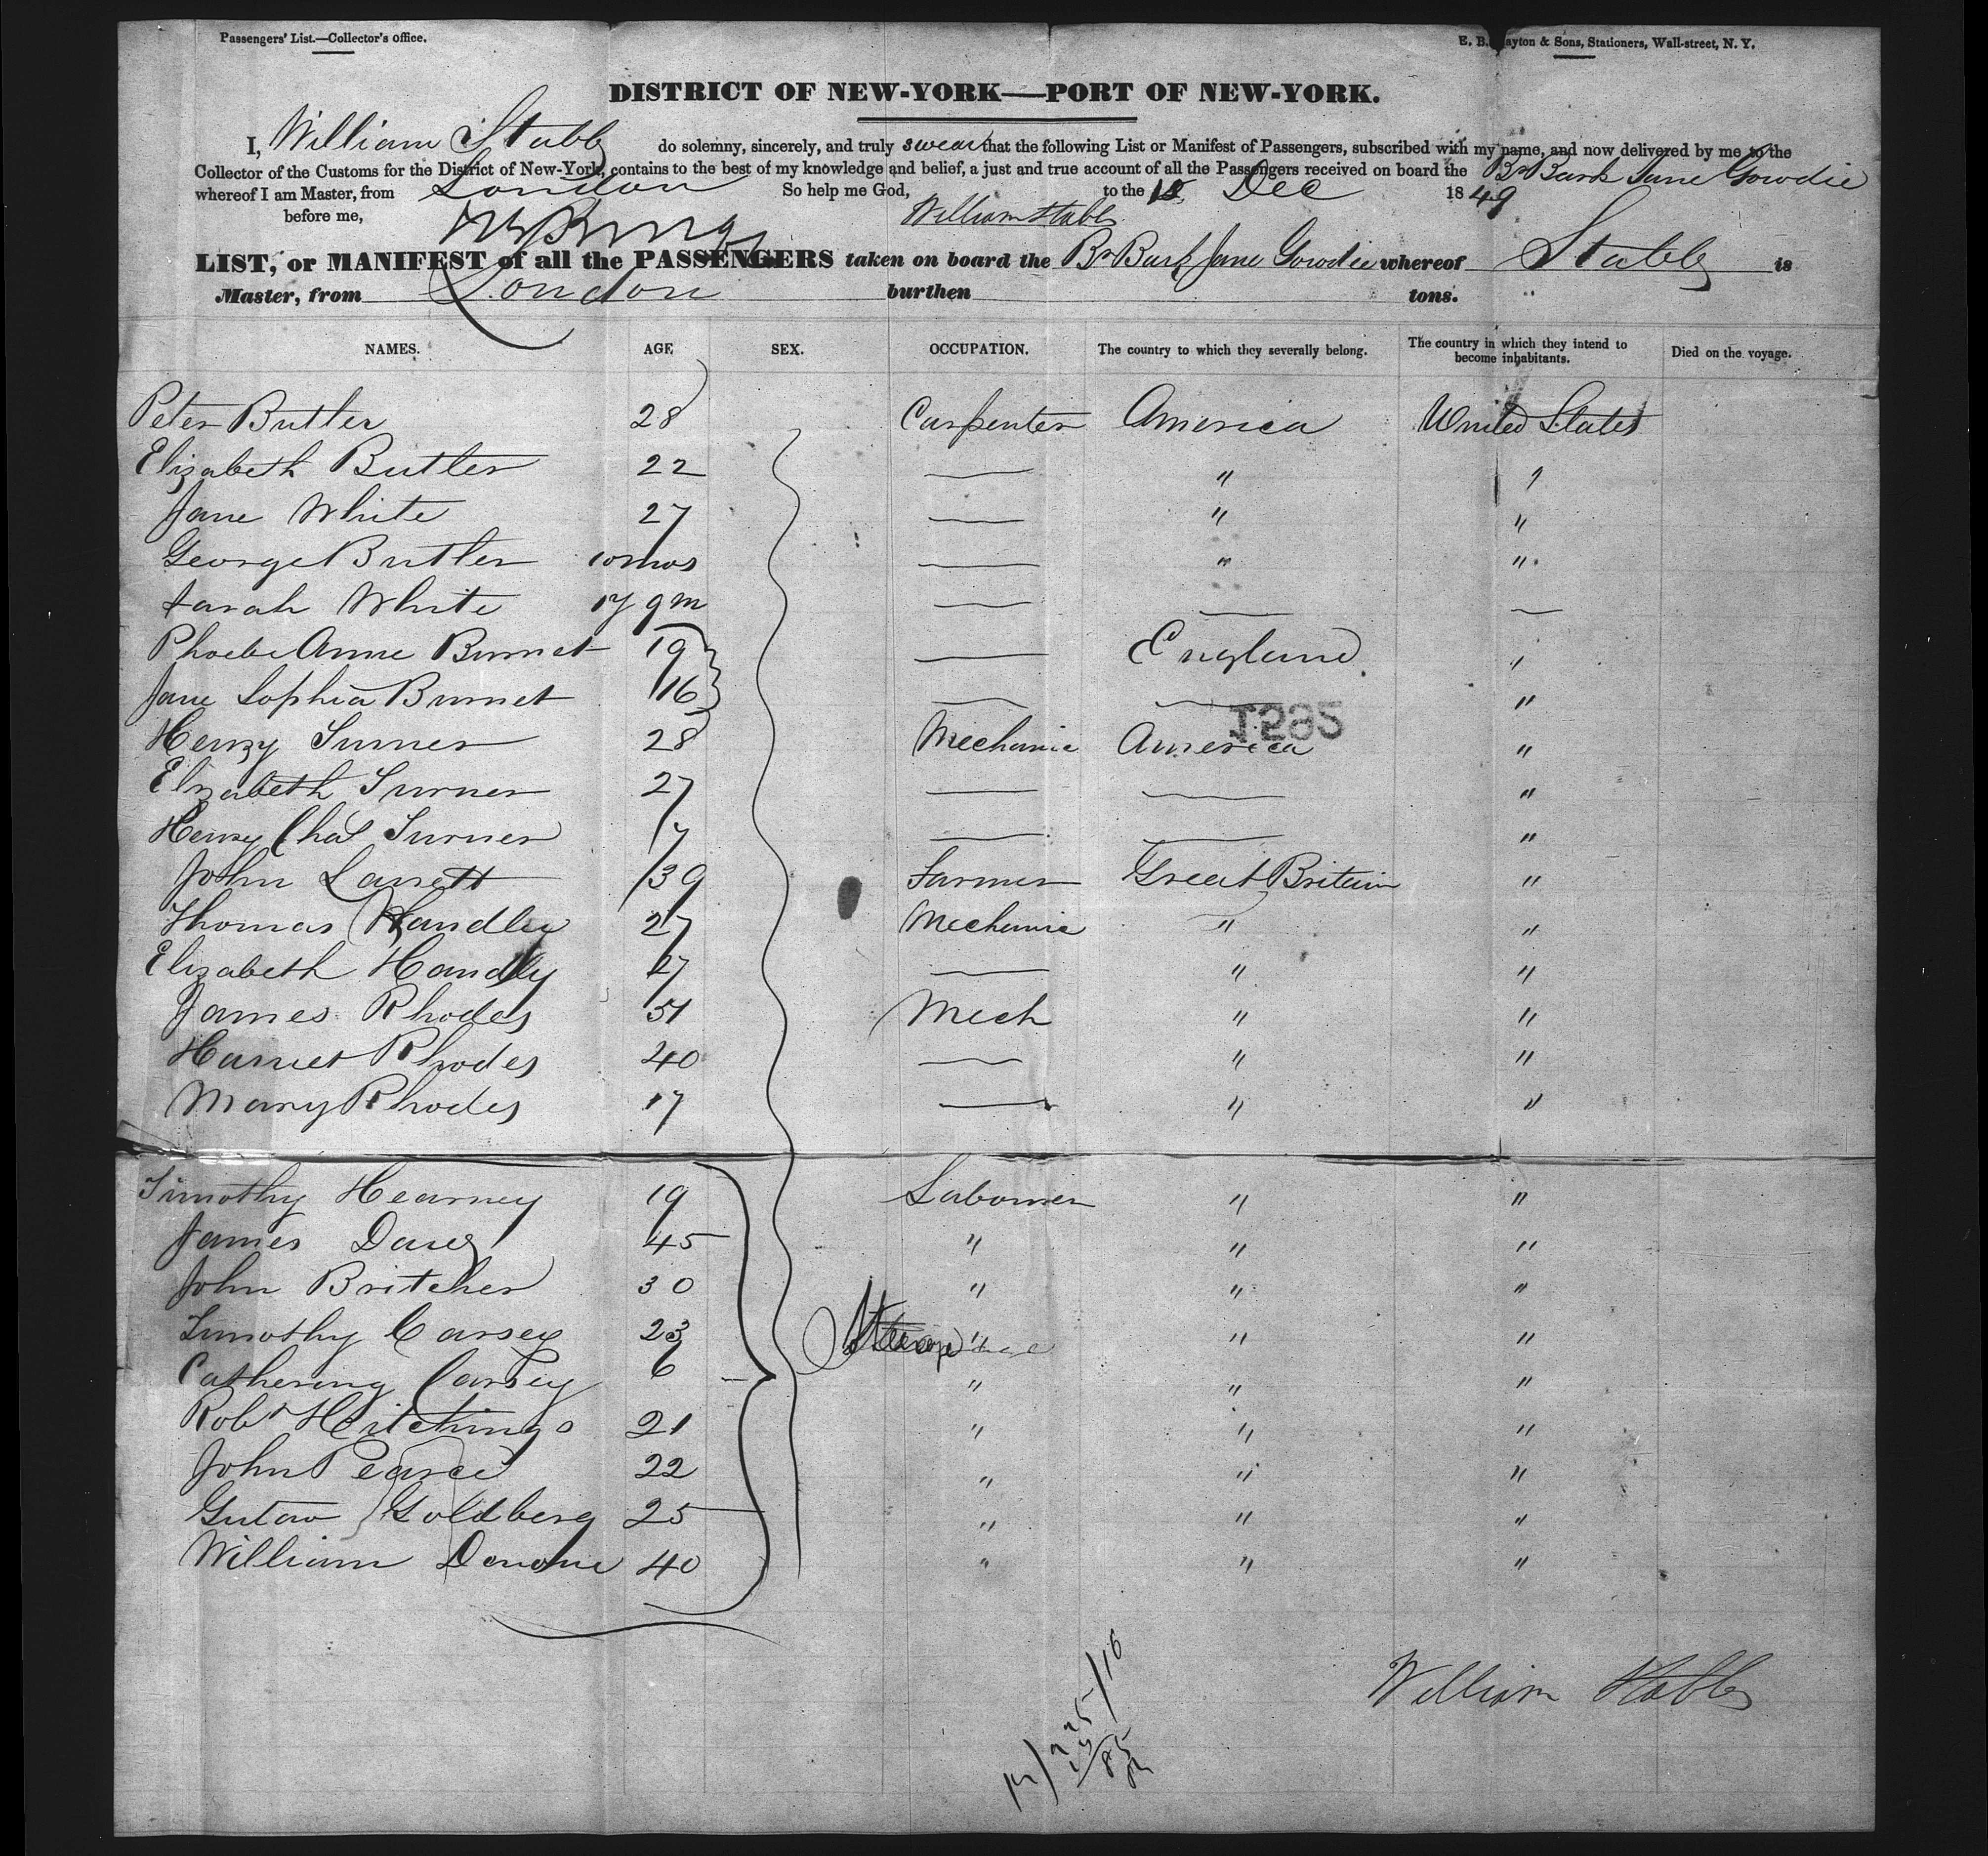 Passengers' List.—Collector's Office.
E. B. Clayton & Sons, Stationers, Wall-street, N. Y.
DISTRICT OF NEW-YORK—PORT OF NEW-YORK.
I, William Stubbs do solemny, sincerely, and truly swear that the following List or Manifest of Passengers, subscribed with my name, and now delivered by me to the
Collector of the Customs for the District of New-York, contains to the best of my knowledge and belief, a just and true account of all the Passengers received on board the Br Bark Jane Gowdie
whereof I am Master, from London So help me God, to the 15 Dec 1849
before me, William Stubbs
LIST, or MANIFEST of all the PASSENGERS taken on board the Br Bark Jane Gowdie whereof Stubbs is
Master, from London burthen tons.
NAMES. AGE SEX. OCCUPATION. The country to which they severally belong. The country in which they intend to become inhabitants. Died on the voyage.
Peter Butler 28 Carpenter America United States
Elizabeth Butler 22 — " "
Jane White 27 — " "
George Butler 10 mos — " "
Sarah White 1y 9m — — —
Phoebe Anne Burnet 19 — England "
Jane Sophia Burnet 16 — — "
1595
Henry Turner 28 Mechanic America "
Elizabeth Turner 27 — — "
Henry Chas Turner 7 — — "
John Larrett 39 Farmer Great Britain "
Thomas Handley 27 Mechanic " "
Elizabeth Handly 27 — " "
James Rhodes 51 Mech " "
Harriet Rhodes 40 — " "
Mary Rhodes 17 — " "
Timothy Hearney 19 Labourer " "
James Davey 45 " " "
John Britcher 30 " " "
Timothy Carsey 23 " " "
Catherine Carsey 6 " " "
Robt Hitchings 21 " " "
John Pearce 22 " " "
Gutav Goldberg 25 " " "
William Donohue 40 " " "
William Stubbs